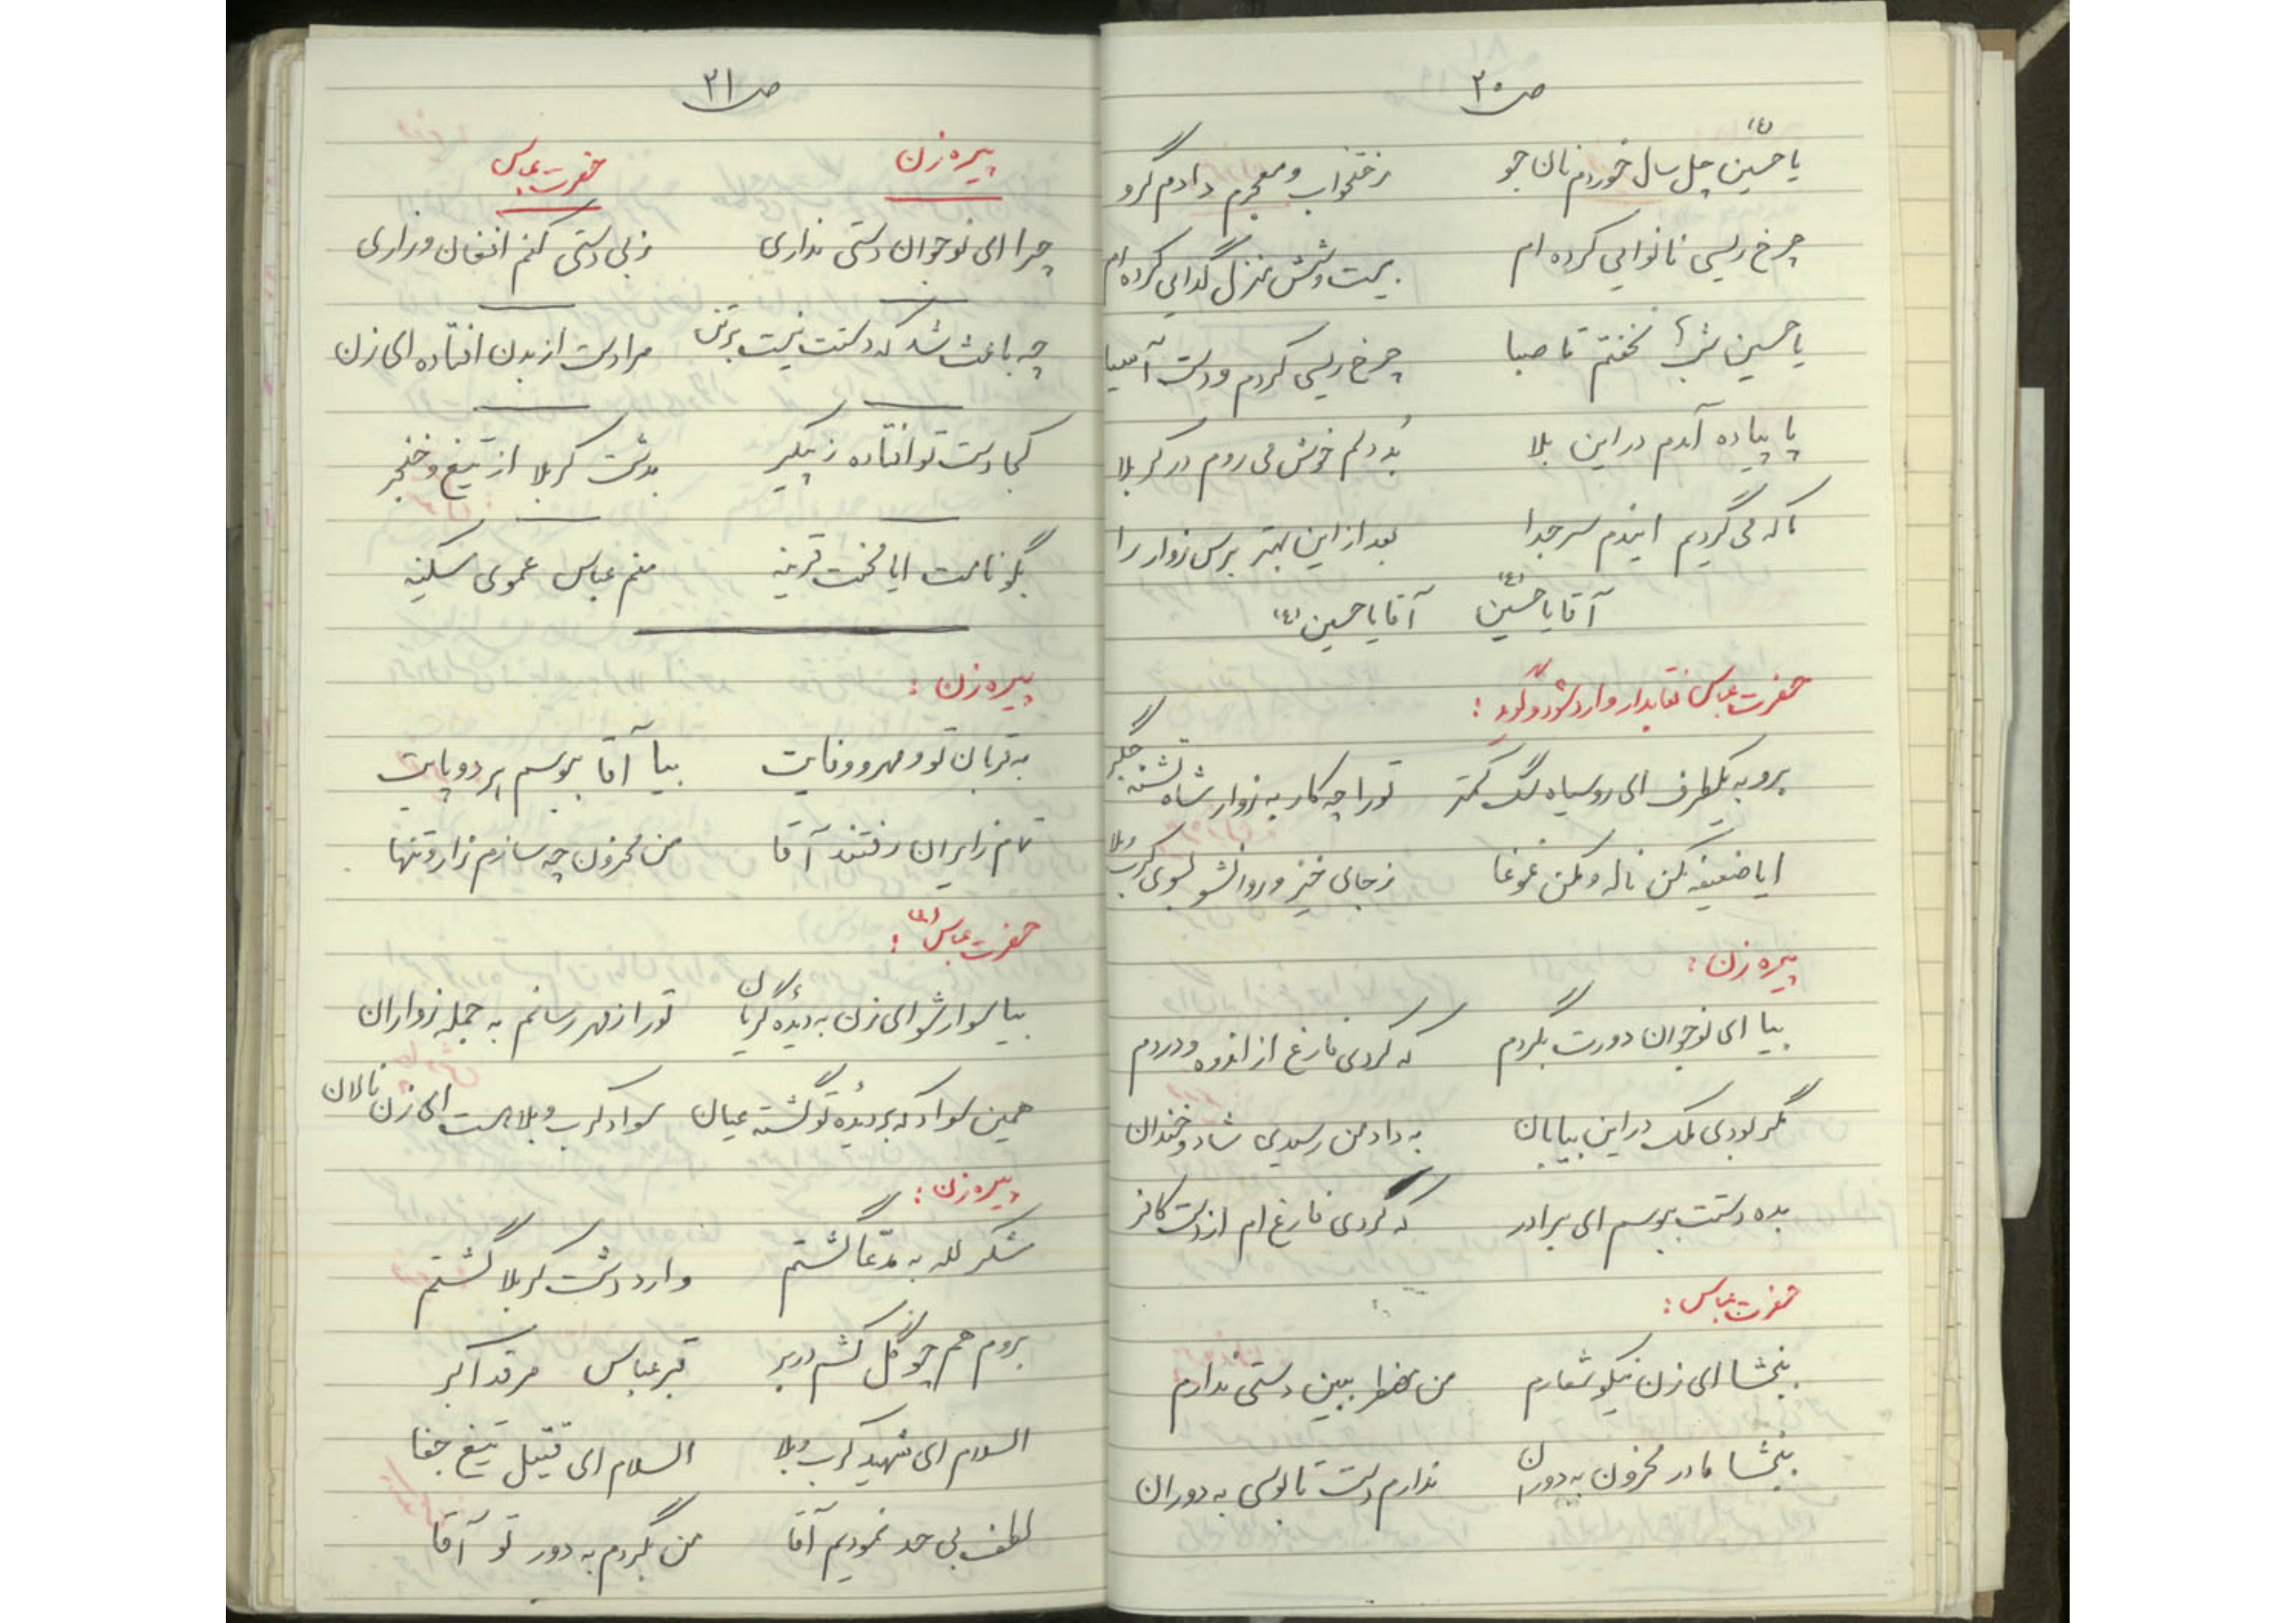 ص۲۰
یا حسین (ع) چل سال خوردم نان جو رختخواب و معجرم دادم گرو
چرخ ریسی نانوایی کرده ام بیست و شش منزل گدایی کرده ام
یا حسین شبها نخفتم تا صبا چرخ ریسی کردم و دست آسیا
پا پیاده آمدم در این بلا بُد دلم خوش می روم در کربلا
ناله می گردیم ایندم سر جدا بعد از این بهتر برس زوار را
آقا یا حسین (ع) آقا یا حسین (ع)
حضرت عباس نقابدار وارد شود و گوید :
برو به یکطرف ای روسیاه سگ کمتر تو را چه کار به زوار شاه تشنه جگر
ایا ضعیفه مکن ناله و مکن غوغا ز جای خیز و روانشو بسوی کرب و بلا
پیره زن :
بیا ای نوجوان دورت بگردم که کردی فارغ از اندوه و دردم
مگر بودی ملک در این بیابان به داد من رسیدی شاد و خندان
بده دستت ببوسم ای برادر که کردی فارغ ام از دست کافر
حضرت عباس :
ببخشا ای زن نیکو شعارم من مضطر ببین دستی ندارم
ببخشا مادر محزون به دوران ندارم دست تا بوسی به دوران
ص۲۱
پیره زن حضرت عباس
چرا ای نوجوان دستی نداری ز بی دستی کنم افغان و زاری
چه باعث شد که دستت نیست بر تن مرا دست از بدن افتاده ای زن
کجا دست تو افتاده ز پیکر بدشت کربلا از تیغ و خنجر
بگو نامت ایا محنت قرینه منم عباس عموی سکینه
پیره زن :
به قربان تو و مهر و وفایت بیا آقا ببوسم هر دو پایت
تمام زایران رفتند آقا من محزون چه سازم زار و تنها
حضرت عباس (ع) :
بیا سوار شو ای زن به دیدهٔ گریان تو را ز مهر رسانم به جمله زواران
همین سواد که بر دیدهٔ تو گشته عیان سواد کرب و بلا هست ای زن نالان
پیره زن :
شکر لله به مدّعا گشتم وارد دشت کربلا گشتم
بروم هم چو گل کشم در بر قبر عباس مرقد اکبر
السلام ای شهید کرب و بلا السلام ای قتیل تیغ جفا
لطف بی حد نمودیم آقا من بگردم به دور تو آقا